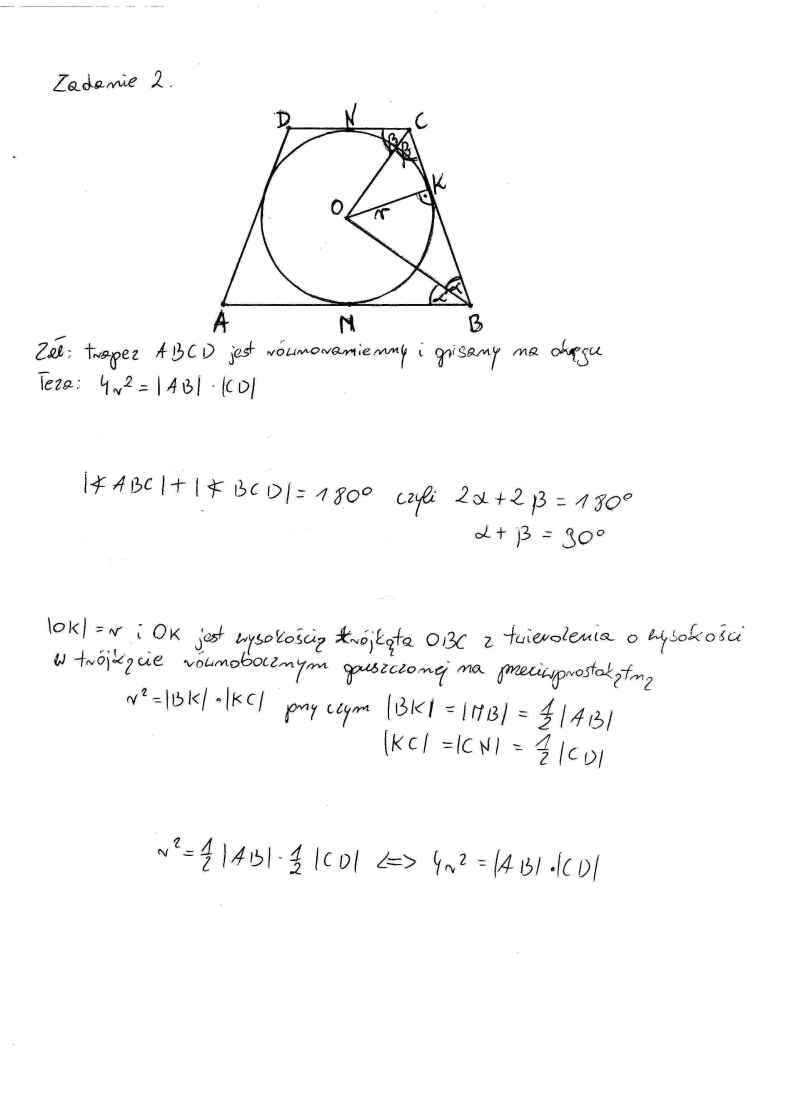 Zadanie 2.
D N C
β β
K
O r
α α
A M B
Zał: trapez ABCD jest równoramienny i opisany na okręgu
Teza: 4r² = |AB| · |CD|
|∢ABC| + |∢BCD| = 180° czyli 2α + 2β = 180°
α + β = 90°
|OK| = r i OK jest wysokością trójkąta OBC z twierdzenia o wysokości
w trójkącie równobocznym opuszczonej na przeciwprostokątną
r² = |BK| · |KC| przy czym |BK| = |MB| = ½ |AB|
|KC| = |CN| = ½ |CD|
r² = ½ |AB| · ½ |CD| <=> 4r² = |AB| · |CD|